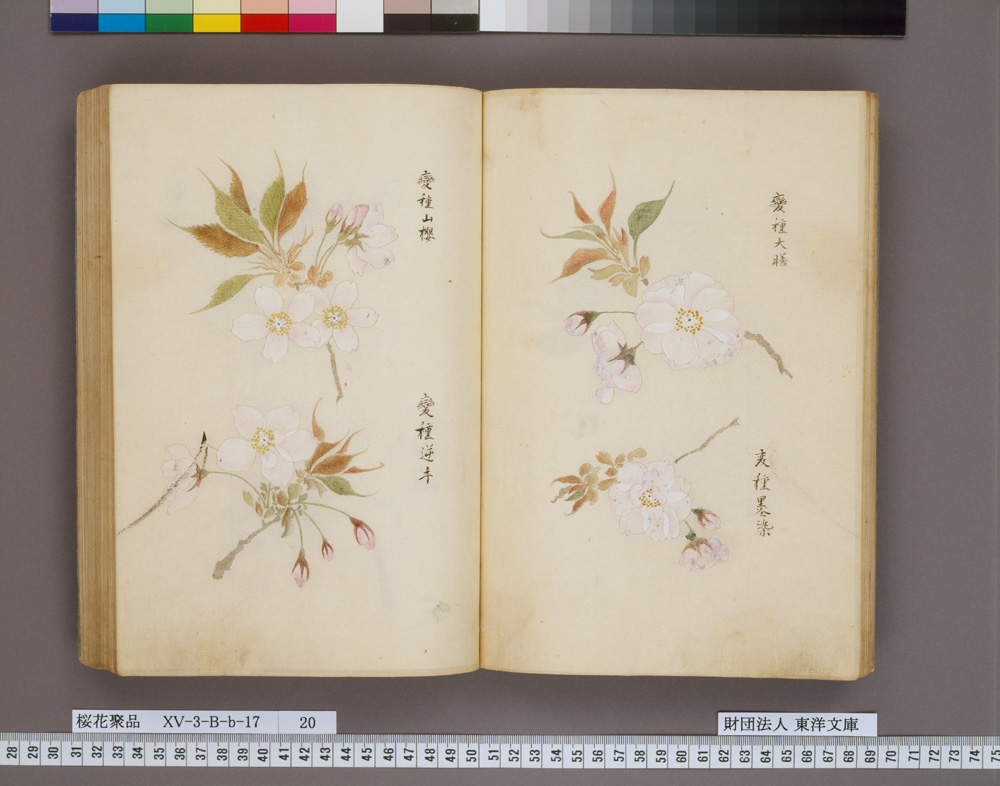 變種大膳
変種墨染
變種山櫻
變種逆手
桜花聚品 XV-3-B-b-17 20
財団法人 東洋文庫
28 29 30 31 32 33 34 35 36 37 38 39 40 41 42 43 44 45 46 47 48 49 50 51 52 53 54 55 56 57 58 59 60 61 62 63 64 65 66 67 68 69 70 71 72 73 74 75